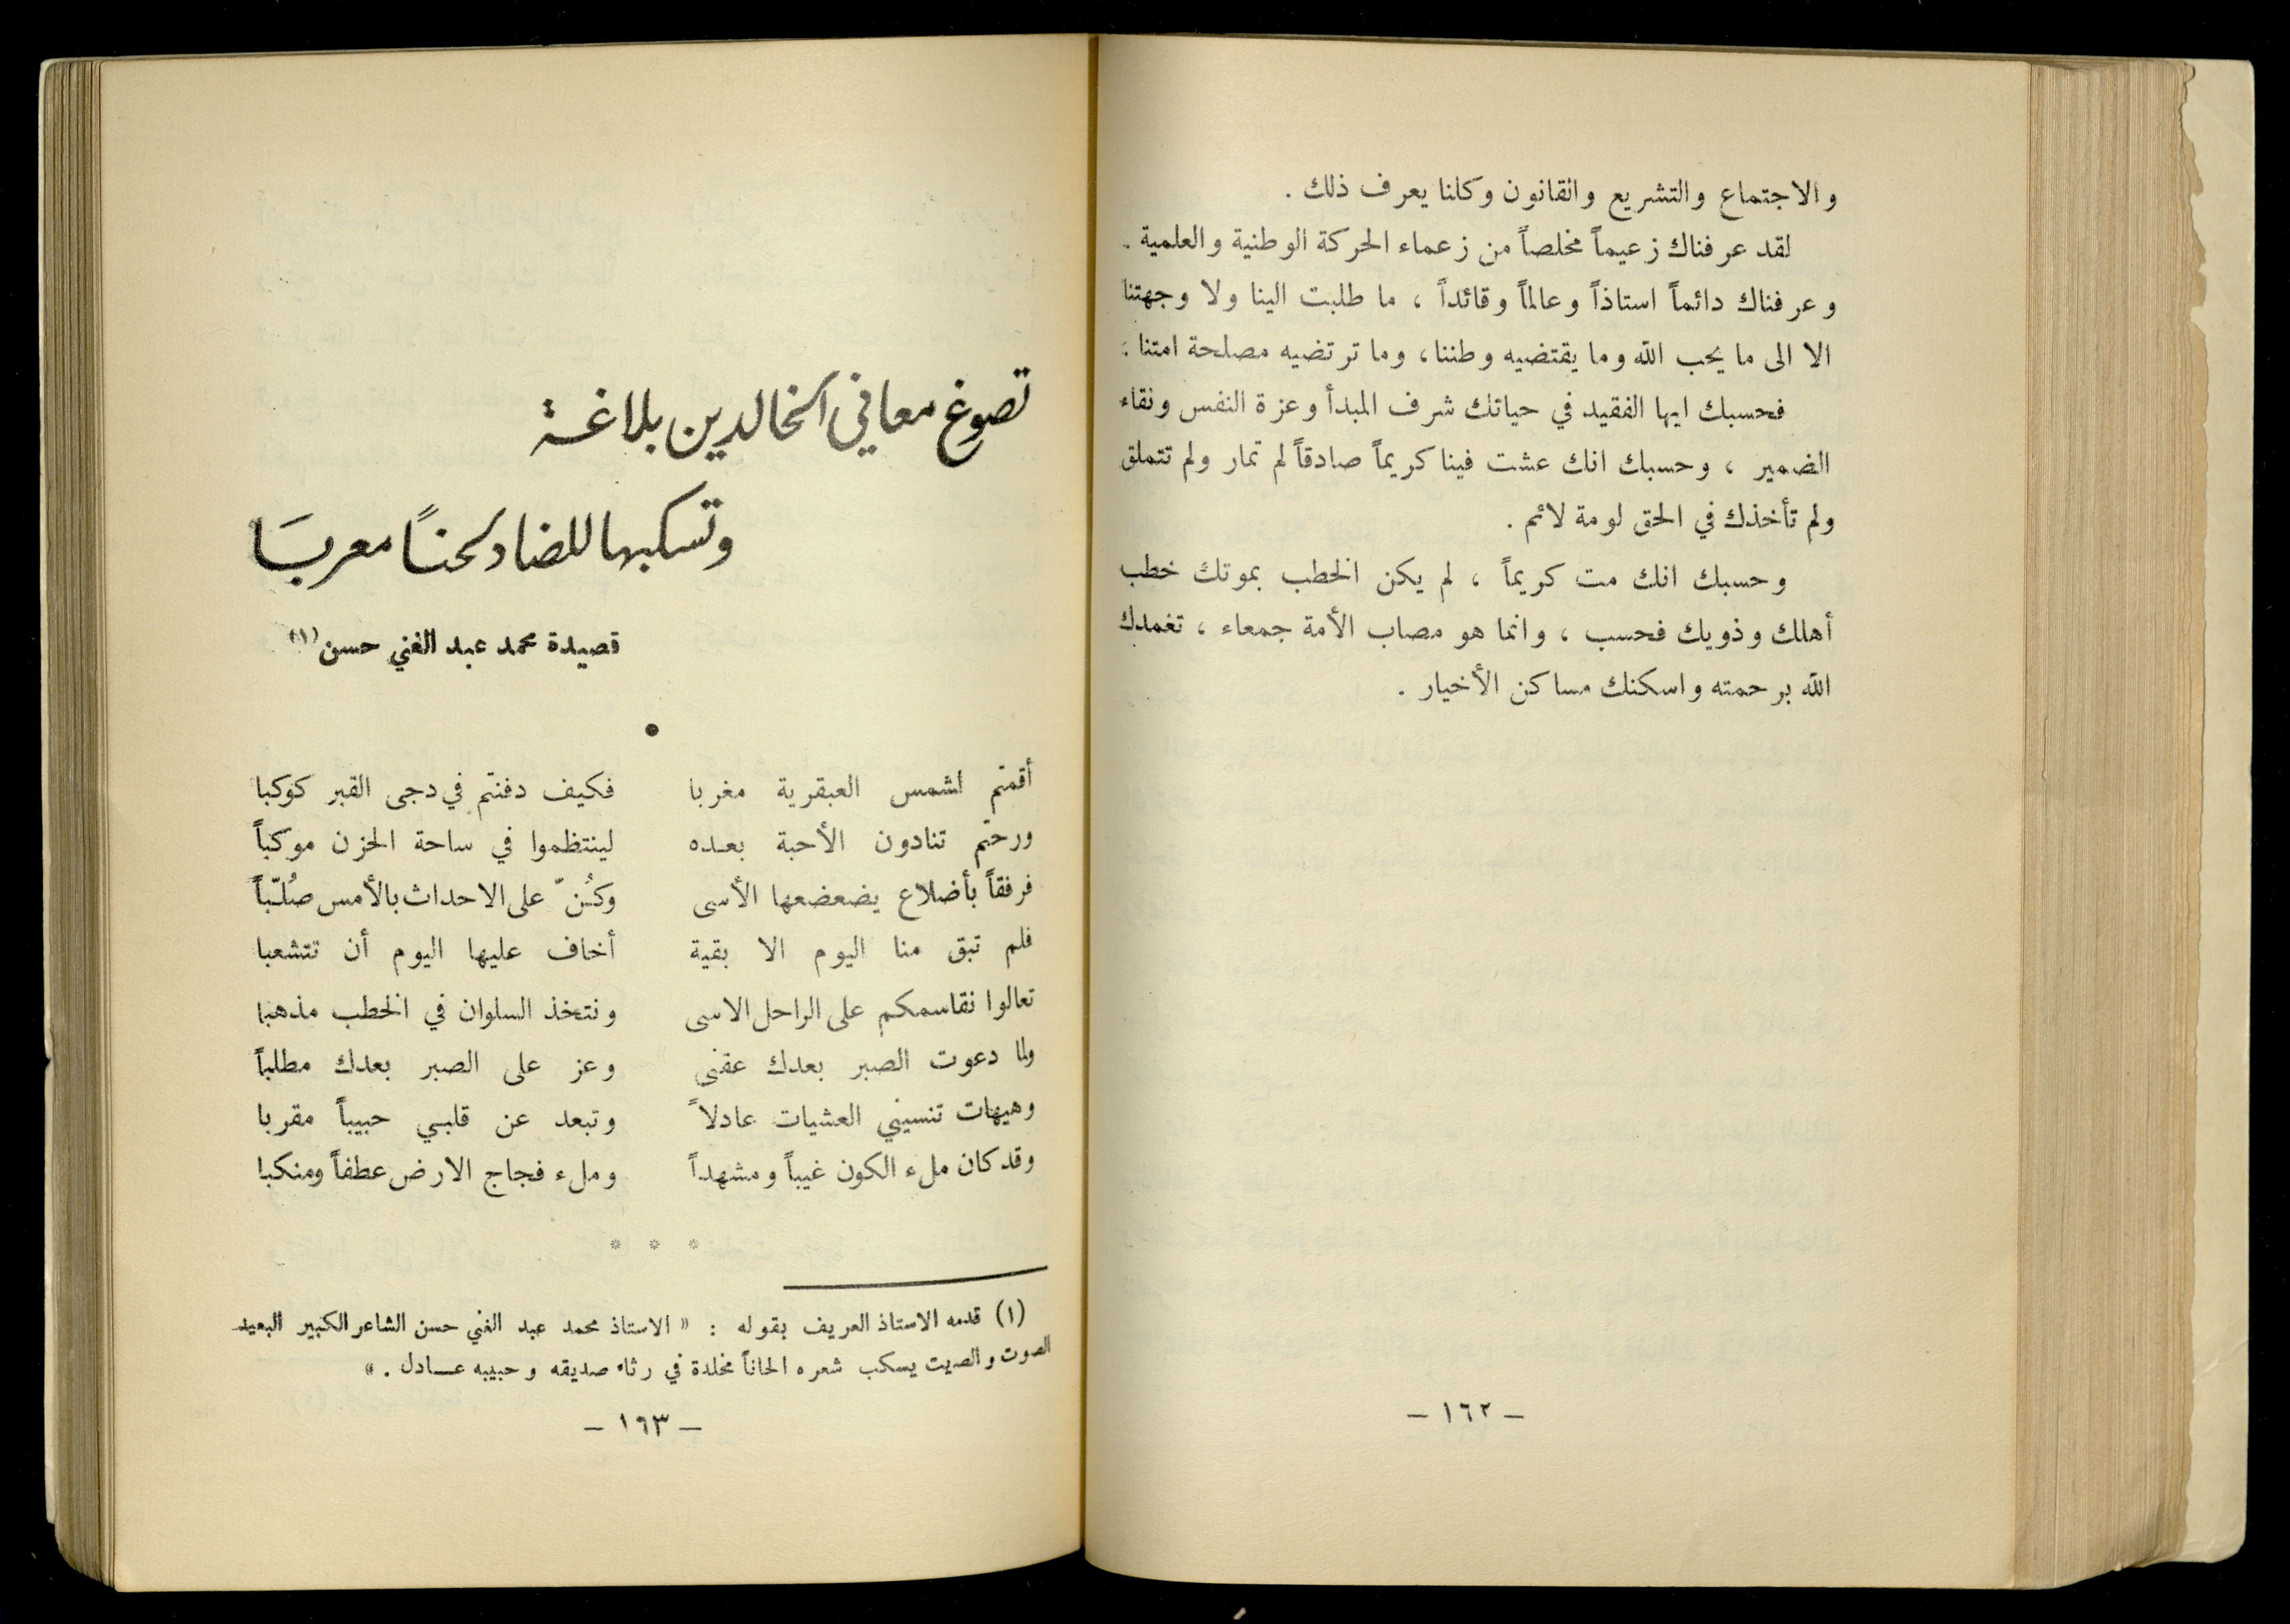 والاجتماع والتشريع والقانون وكلنا يعرف ذلك .
لقد عرفناك زعيماً مخلصاً من زعماء الحركة الوطنية والعلمية .
وعرفناك دائماً استاذاً وعالماً وقائداً ، ما طلبت الينا ولا وجهتنا
الا الى ما يحب الله وما يقتضيه وطننا ، وما ترتضيه مصلحة امتنا :
فحسبك ايها الفقيد في حياتك شرف المبدأ وعزة النفس ونقاء
الضمير ، وحسبك انك عشت فينا كريماً صادقاً لم تمار ولم تتملق
ولم تأخذك في الحق لومة لائم .
وحسبك انك مت كريماً ، لم يكن الخطب بموتك خطب
أهلك وذويك فحسب ، وانما هو مصاب الأمة جمعاء ، تغمدك
الله برحمته واسكنك مساكن الأخيار .
– ١٦٢ –
تصوغ معاني الخالدين بلاغة
وتسكبها للضاد لحناً معربَا
قصيدة محمد عبد الغني حسن (١)
●
أقمتم لشمس العبقرية مغربا فكيف دفنتم في دجى القبر كوكبا
ورحتم تنادون الأحبة بعده لينتظموا في ساحة الحزن موكباً
فرفقاً بأضلاع يضعضعها الأسى وكُنّ على الاحداث بالأمس صُلّباً
فلم تبق منا اليوم الا بقية أخاف عليها اليوم أن تتشعبا
تعالوا نقاسمكم على الراحل الاسى ونتخذ السلوان في الخطب مذهبا
ولما دعوت الصبر بعدك عقني وعز على الصبر بعدك مطلباً
وهيهات تنسيني العشيات عادلاً وتبعد عن قلبي حبيباً مقربا
وقد كان ملء الكون غيباً ومشهداً وملء فجاج الارض عطفاً ومنكبا
* * *
(١) قدمه الاستاذ العريف بقوله : « الاستاذ محمد عبد الغني حسن الشاعر الكبير البعيد
الصوت والصيت يسكب شعره الحاناً مخلدة في رثاء صديقه وحبيبه عــادل . »
– ١٦٣ –